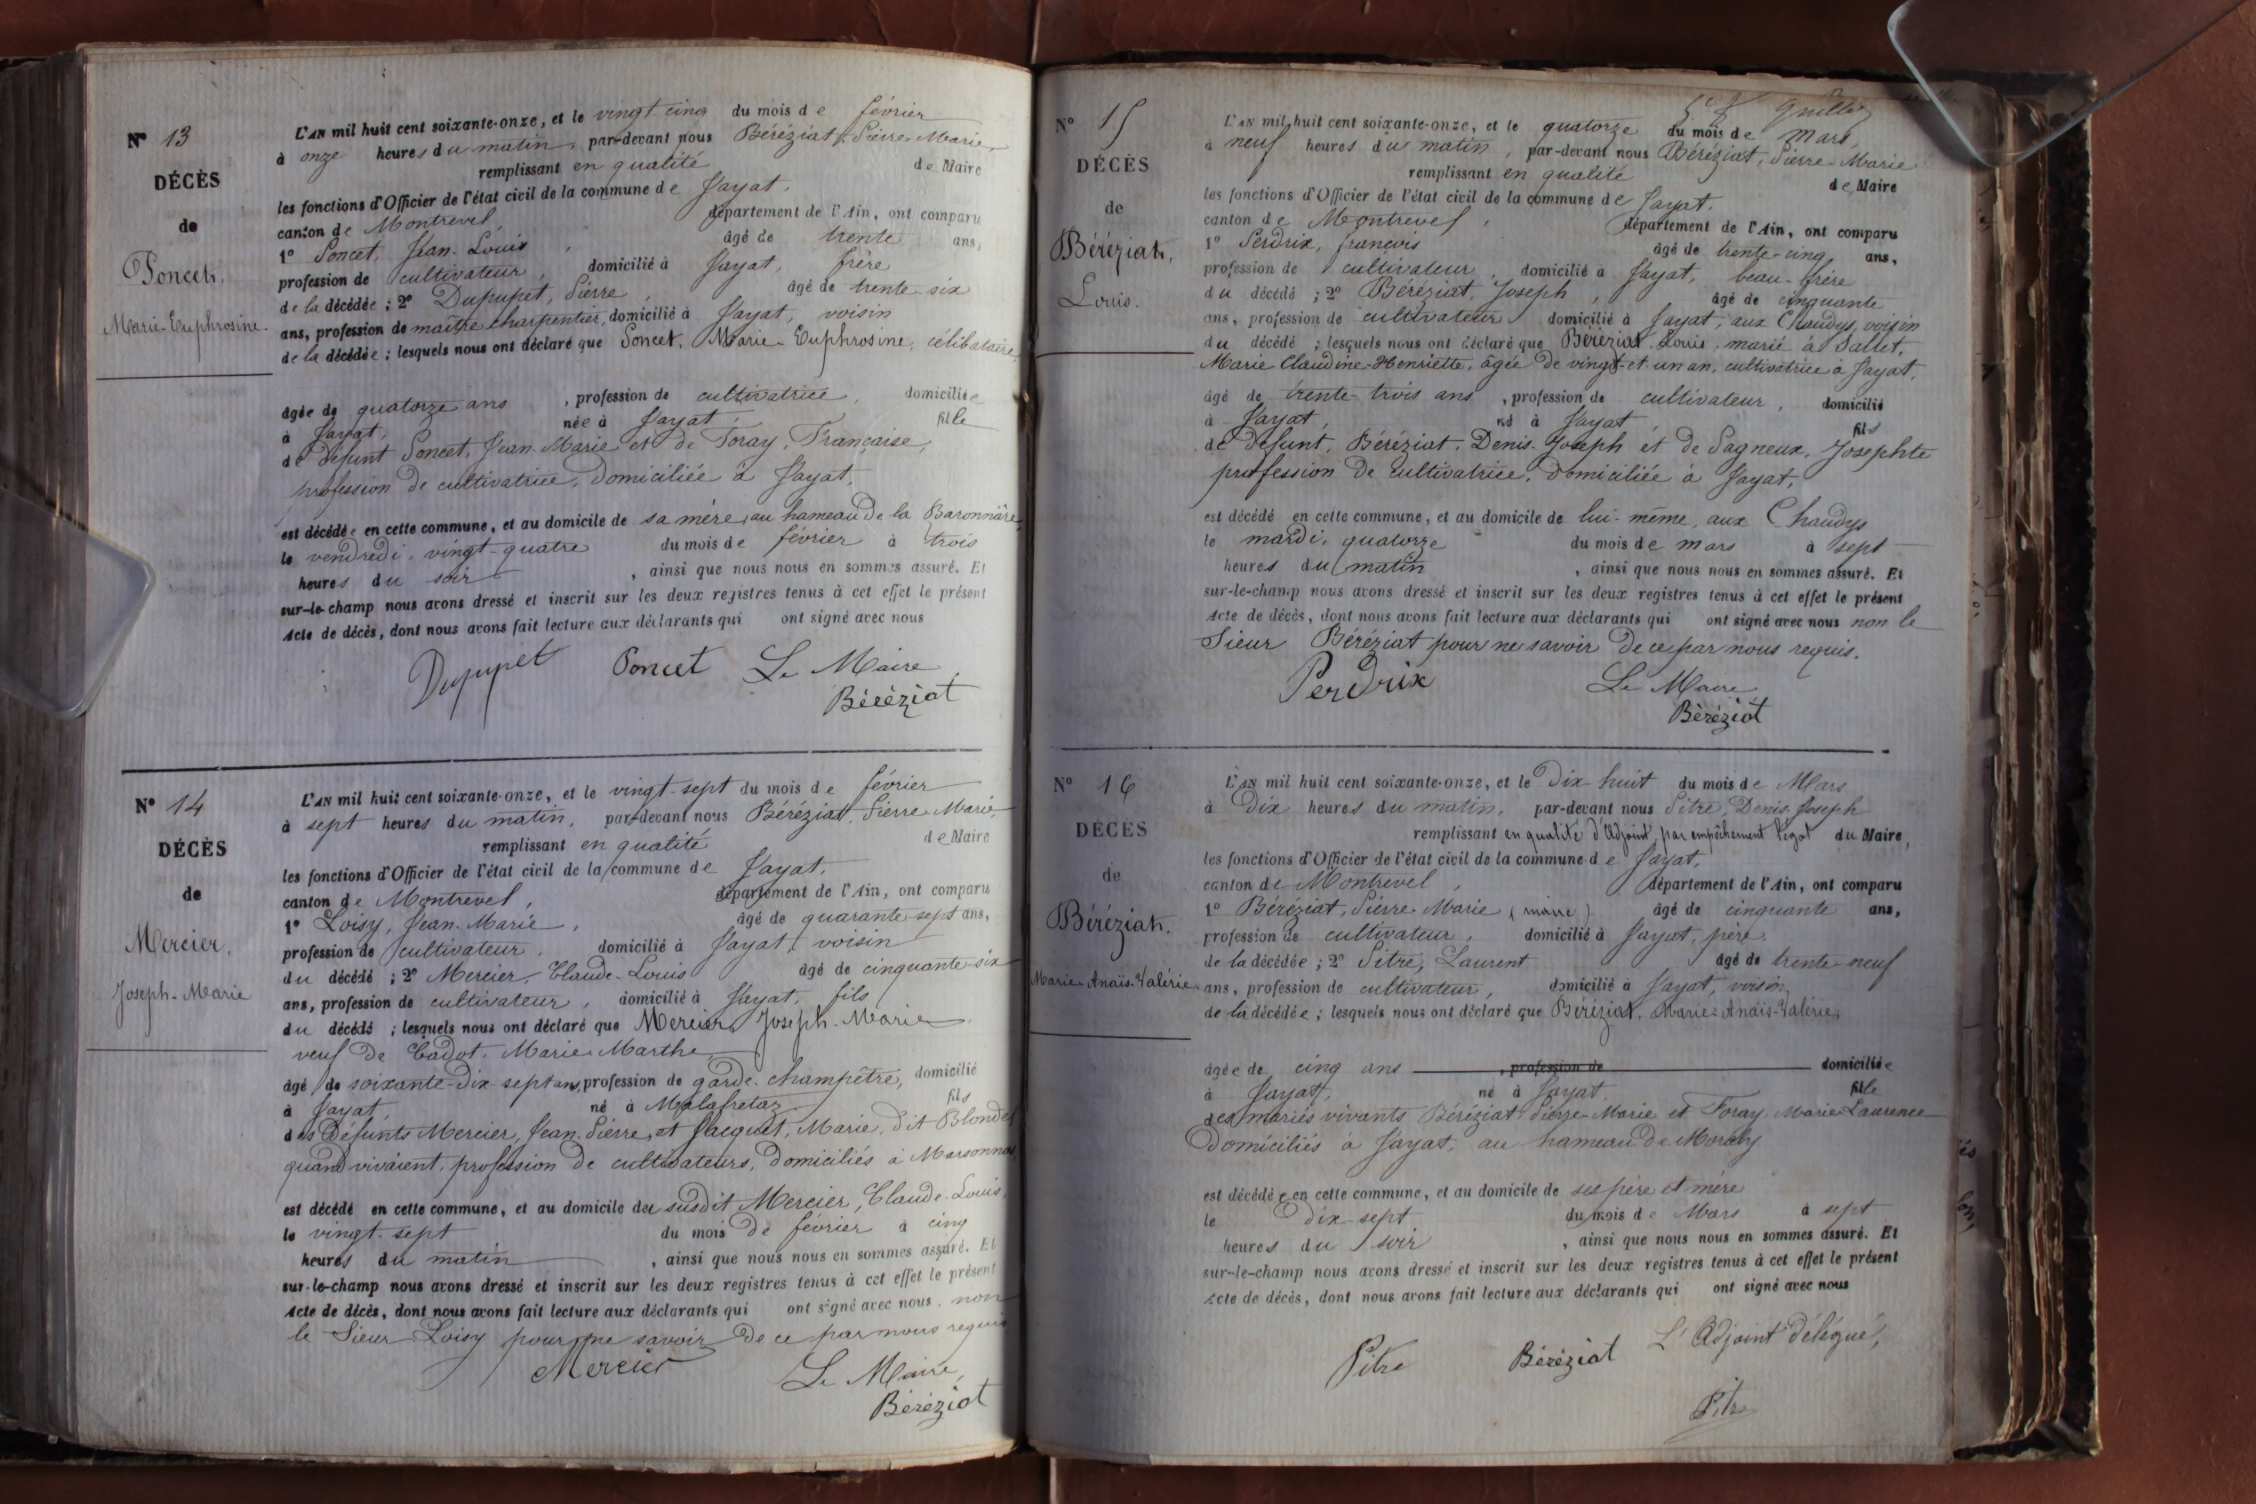 Nº 13
DÉCÈS
de
Poncet,
Marie-Euphrosine.
L'AN mil huit cent soixante-onze, et le vingt cinq du mois de février
à onze heures du matin, par-devant nous Béréziat, Pierre-Marie,
remplissant en qualité de Maire
les fonctions d'Officier de l'état civil de la commune de Jayat,
canton de Montrevel, département de l'Ain, ont comparu
1º Poncet, Jean-Louis, âgé de trente ans,
profession de cultivateur, domicilié à Jayat, frère
de la décédée ; 2º Dupupet, Pierre, âgé de trente-six
ans, profession de maître charpentier, domicilié à Jayat, voisin
de la décédée ; lesquels nous ont déclaré que Poncet, Marie-Euphrosine, célibataire,
âgée de quatorze ans, profession de cultivatrice, domiciliée
à Jayat, née à Jayat, fille
de défunt Poncet, Jean-Marie et de Foray, Française,
profession de cultivatrice, domiciliée à Jayat,
est décédée en cette commune, et au domicile de sa mère, au hameau de la Baronnière,
le vendredi, vingt-quatre du mois de février à trois
heures du soir, ainsi que nous nous en sommes assuré. Et
sur-le-champ nous avons dressé et inscrit sur les deux registres tenus à cet effet le présent
Acte de décès, dont nous avons fait lecture aux déclarants qui ont signé avec nous
Dupupet Poncet Le Maire
Béréziat
Nº 14
DÉCÈS
de
Mercier,
Joseph-Marie
L'AN mil huit cent soixante-onze, et le vingt-sept du mois de février
à sept heures du matin, par-devant nous Béréziat, Pierre-Marie,
remplissant en qualité de Maire
les fonctions d'Officier de l'état civil de la commune de Jayat,
canton de Montrevel, département de l'Ain, ont comparu
1º Loisy, Jean-Marie, âgé de quarante sept ans,
profession de cultivateur, domicilié à Jayat, voisin
du décédé ; 2º Mercier, Claude-Louis âgé de cinquante-six
ans, profession de cultivateur, domicilié à Jayat, fils
du décédé ; lesquels nous ont déclaré que Mercier, Joseph-Marie,
veuf de Cadot, Marie-Marthe,
âgé de soixante-dix-sept ans, profession de garde-champêtre, domicilié
à Jayat, né à Malafretaz fils
des défunts Mercier, Jean-Pierre, et Jacquet, Marie, dit Blondel
quand vivaient, profession de cultivateurs, domiciliés à Marsonnas,
est décédé en cette commune, et au domicile du susdit Mercier, Claude-Louis,
le vingt-sept du mois de février à cinq
heures du matin, ainsi que nous nous en sommes assuré. Et
sur-le-champ nous avons dressé et inscrit sur les deux registres tenus à cet effet le présent
Acte de décès, dont nous avons fait lecture aux déclarants qui ont signé avec nous, non
le Sieur Loisy pour ne savoir de ce par nous requis
Mercier Le Maire,
Béréziat
Nº 15
DÉCÈS
de
Béréziat,
Louis.
L'AN mil huit cent soixante-onze, et le quatorze du mois de Mars,
à neuf heures du matin, par-devant nous Béréziat, Pierre-Marie
remplissant en qualité de Maire
les fonctions d'Officier de l'état civil de la commune de Jayat,
canton de Montrevel, département de l'Ain, ont comparu
1º Perdrix, francois âgé de trente-cinq ans,
profession de cultivateur, domicilié à Jayat, beau-frère
du décédé ; 2º Béréziat, Joseph, âgé de cinquante
ans, profession de cultivateur domicilié à Jayat, aux Chaudys, voisin
du décédé ; lesquels nous ont déclaré que Béréziat Louis, marié à Sallet,
Marie Claudine-Henriette, âgée de vingt-et-un an, cultivatrice à Jayat,
âgé de trente-trois ans, profession de cultivateur, domicilié
à Jayat, né à Jayat fils
de défunt, Béréziat, Denis-Joseph et de Pagneux, Josephte
profession de cultivatrice, domiciliée à Jayat,
est décédé en cette commune, et au domicile de lui-même, aux Chaudys
le mardi, quatorze du mois de mars à sept
heures du matin, ainsi que nous nous en sommes assuré. Et
sur-le-champ nous avons dressé et inscrit sur les deux registres tenus à cet effet le présent
Acte de décès, dont nous avons fait lecture aux déclarants qui ont signé avec nous non le
Sieur Béréziat pour ne savoir de ce par nous requis.
Perdrix Le Maire
Béréziat
Nº 16
DÉCÈS
de
Béréziat,
Marie-Anaïs-Valérie
L'AN mil huit cent soixante-onze, et le dix-huit du mois de Mars
à dix heures du matin, par-devant nous Pitre, Denis-Joseph
remplissant en qualité d'Adjoint, par empêchement légal du Maire,
les fonctions d'Officier de l'état civil de la commune de Jayat,
canton de Montrevel, département de l'Ain, ont comparu
1º Béréziat, Pierre-Marie (maire) âgé de cinquante ans,
profession de cultivateur, domicilié à Jayat, père
de la décédée ; 2º Pitre, Laurent âgé de trente-neuf
ans, profession de cultivateur, domicilié à Jayat, voisin
de la décédée ; lesquels nous ont déclaré que Béréziat, Marie-Anaïs-Valérie,
âgée de cinq ans, profession de domiciliée
à Jayat, né à Jayat fille
des mariés vivants Béréziat Pierre-Marie et Foray Marie-Laurence
domiciliés à Jayat, au hameau de
est décédée en cette commune, et au domicile de ses père et mère
le dix-sept du mois de Mars à sept
heures du soir, ainsi que nous nous en sommes assuré. Et
sur-le-champ nous avons dressé et inscrit sur les deux registres tenus à cet effet le présent
Acte de décès, dont nous avons fait lecture aux déclarants qui ont signé avec nous
Pitre Béréziat L'Adjoint délégué,
Pitre